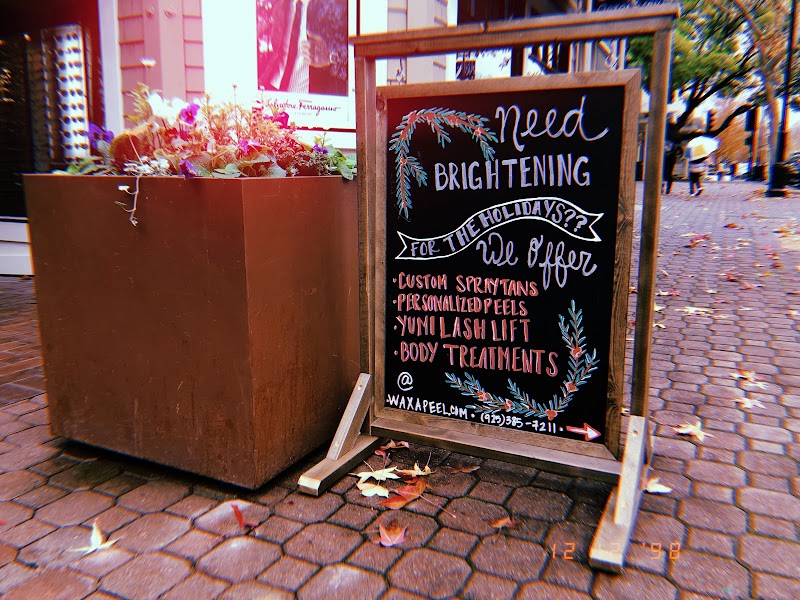 Salvatore Ferragamo
Need
BRIGHTENING
FOR THE HOLIDAYS??
We Offer
• CUSTOM SPRAYTANS
• PERSONALIZED PEELS
• YUMI LASH LIFT
• BODY TREATMENTS
@
WAXAPEEL.COM • (925)385-7211 •
12 '98